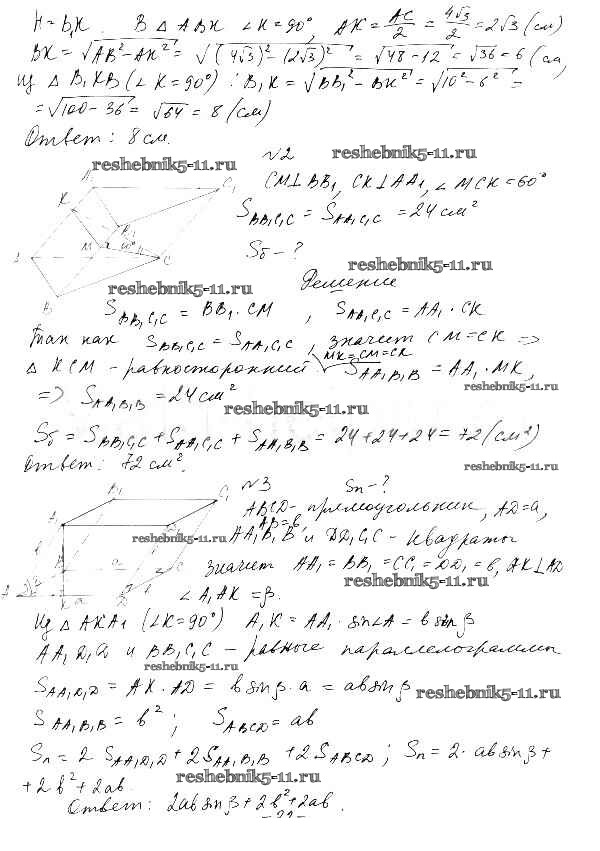 H = B₁K. В △ ABK ∠K = 90°, AK = AC/2 = 4√3/2 = 2√3 (см)
BK = √(AB² - AK²) = √((4√3)² - (2√3)²) = √(48 - 12) = √36 = 6 (см)
Из △ B₁KB (∠K = 90°): B₁K = √(BB₁² - BK²) = √(10² - 6²) =
= √(100 - 36) = √64 = 8 (см)
Ответ: 8 см.
reshebnik5-11.ru
№2
reshebnik5-11.ru
A₁
C₁
CM⊥BB₁, CK⊥AA₁, ∠MCK = 60°
K
S BB₁C₁C = S AA₁C₁C = 24 см²
B₁
M
60°
C
Sб - ?
A
B
reshebnik5-11.ru
reshebnik5-11.ru
Решение
S BB₁C₁C = BB₁ · CM , S AA₁C₁C = AA₁ · CK
Так как S BB₁C₁C = S AA₁C₁C, значит CM = CK =>
MK = CM = CK
△ KCM - равносторонний S AA₁B₁B = AA₁ · MK,
reshebnik5-11.ru
=> S AA₁B₁B = 24 см²
reshebnik5-11.ru
Sб = S BB₁C₁C + S AA₁C₁C + S AA₁B₁B = 24 + 24 + 24 = 72 (см²)
Ответ: 72 см².
reshebnik5-11.ru
№3 Sп - ?
B₁
C₁
ABCD - прямоугольник, AD = a,
A₁
AB = b
reshebnik5-11.ru
AA₁B₁B и DD₁C₁C - квадраты
B
C
значит AA₁ = BB₁ = CC₁ = DD₁ = b, AK⊥AD
reshebnik5-11.ru
A
K
a
D
∠A₁AK = β.
Из △ AKA₁ (∠K = 90°) A₁K = AA₁ · sin∠A = b sinβ
AA₁D₁D и BB₁C₁C - равные параллелограммы
reshebnik5-11.ru
S AA₁D₁D = AK · AD = b sinβ · a = ab sinβ
reshebnik5-11.ru
S AA₁B₁B = b²; S ABCD = ab
Sп = 2 S AA₁D₁D + 2 S AA₁B₁B + 2 S ABCD; Sп = 2 · ab sinβ +
+ 2b² + 2ab.
reshebnik5-11.ru
Ответ: 2ab sinβ + 2b² + 2ab.
- 22 -